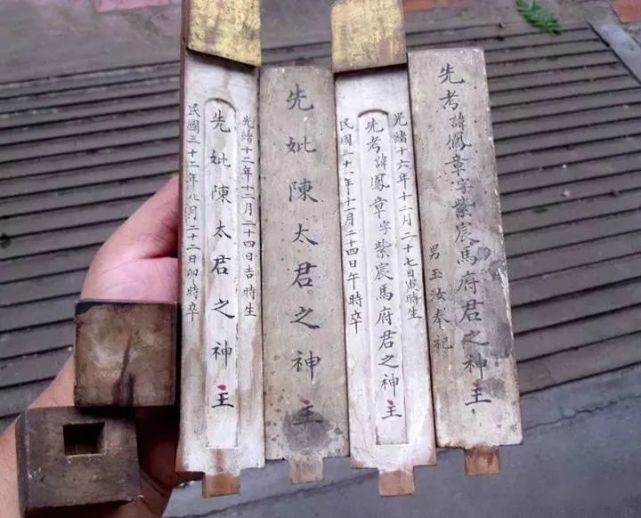 先考諱鳳章字紫宸馬府君之神主
男玉汝奉祀
光緒十六年十二月二十七日寅時生
先考諱鳳章字紫宸馬府君之神主
民國三十一年十二月二十四日午時卒
先妣陳太君之神主
光緒十二年十二月二十四日吉時生
先妣陳太君之神主
民國三十二年八月二十二日卯時卒